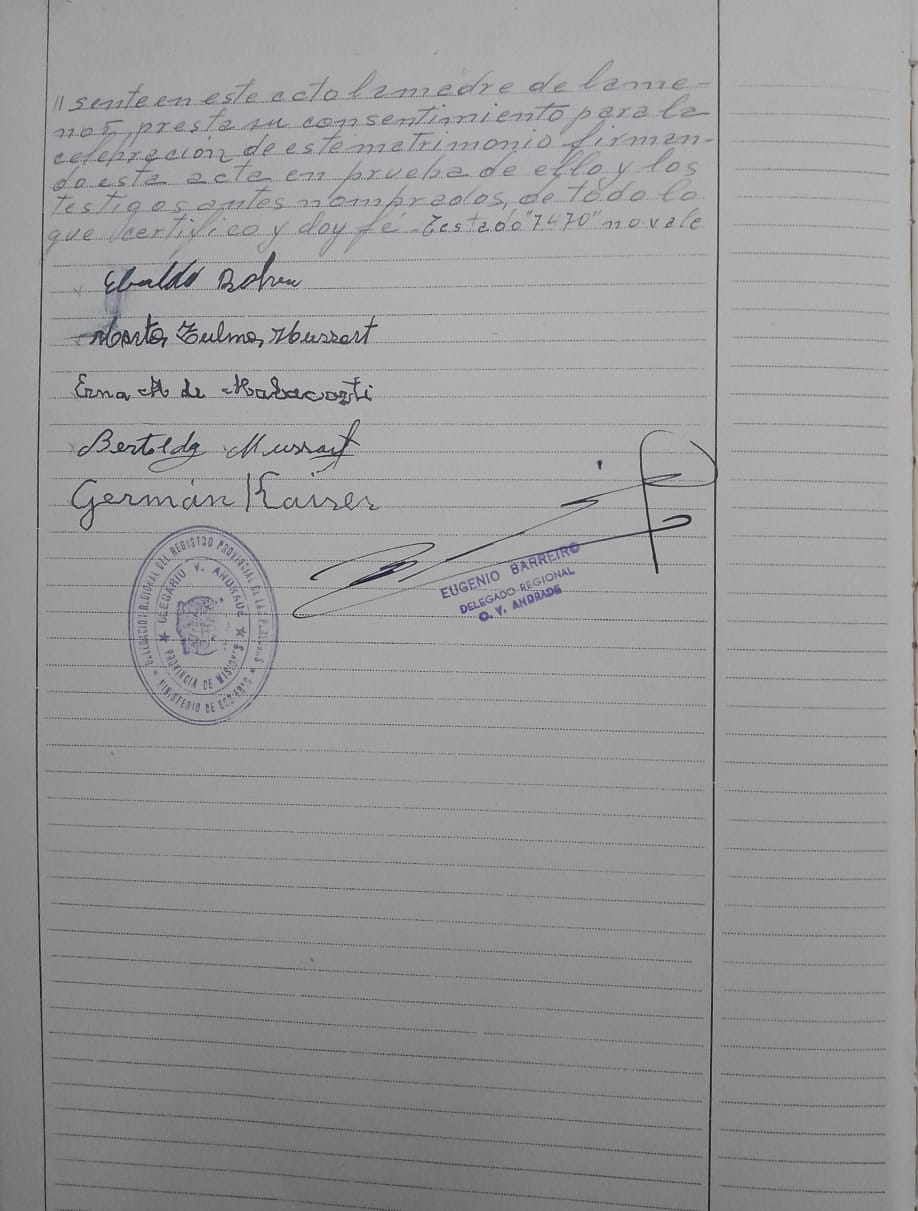 // sente en este acto la madre de la me-
nor presta su consentimiento para la
celebración de este matrimonio firman-
do esta acta en prueba de ello y los
testigos antes nombrados, de todo lo
que certifico y doy fé. Testado "7470" no vale
Ebaldo
Marta Zulma Mussart
Erna M de
Bertoldo Mussart
Germán Kaiser
EUGENIO BARREIRO
DELEGADO REGIONAL
O. V. ANDRADE
DELEGACION REGIONAL DEL REGISTRO PROVINCIAL DE LAS PERSONAS
OLEGARIO V. ANDRADE
PROVINCIA DE MISIONES
MINISTERIO DE GOBIERNO